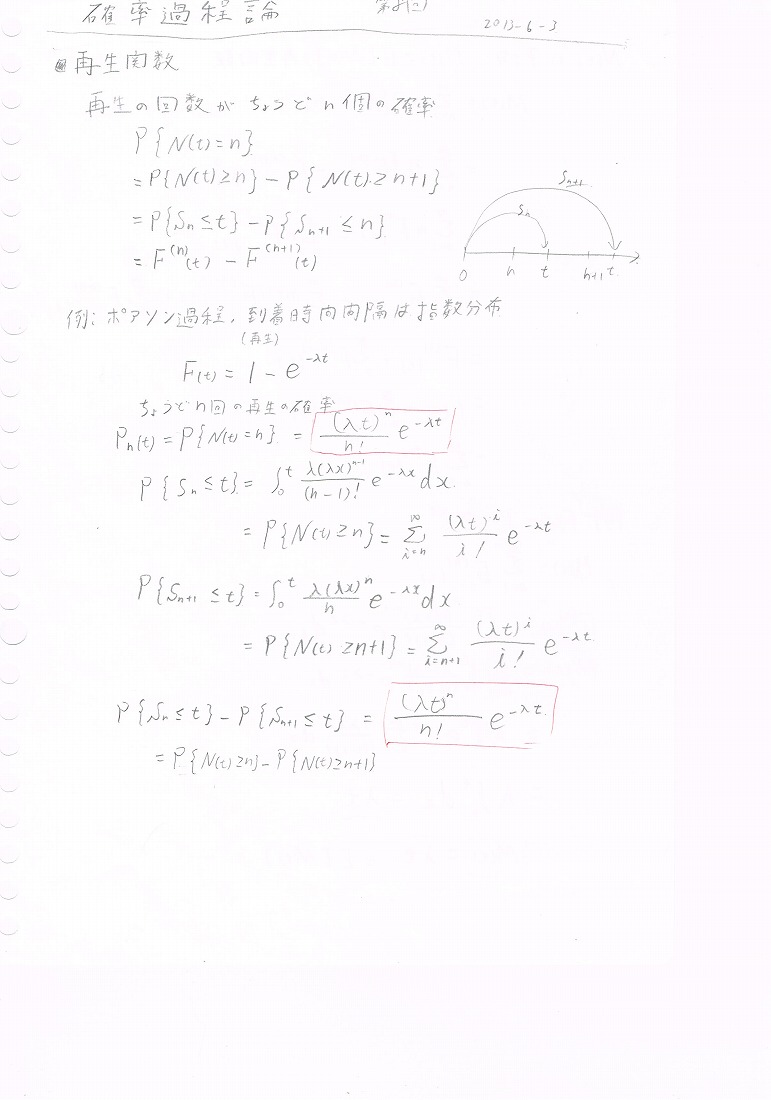 確率過程論 第8回 2013-6-3
再生関数
再生の回数がちょうどn個の確率
P{N(t)=n}
=P{N(t)≥n}-P{N(t)≥n+1}
=P{Sn≤t}-P{Sn+1≤n}
=F^(n)(t)-F^(n+1)(t)
Sn+1
Sn
0 n t n+1 t
例:ポアソン過程,到着時間間隔は指数分布
(再生)
F(t)=1-e^-λt
ちょうどn回の再生の確率
Pn(t)=P{N(t)=n}=(λt)^n/n! e^-λt
P{Sn≤t}=∫0^t λ(λx)^n-1/(n-1)! e^-λx dx
=P{N(t)≥n}=Σi=n^∞ (λt)^i/i! e^-λt
P{Sn+1≤t}=∫0^t λ(λx)^n/n e^-λx dx
=P{N(t)≥n+1}=Σi=n+1^∞ (λt)^i/i! e^-λt
P{Sn≤t}-P{Sn+1≤t}=(λt)^n/n! e^-λt
=P{N(t)≥n}-P{N(t)≥n+1}